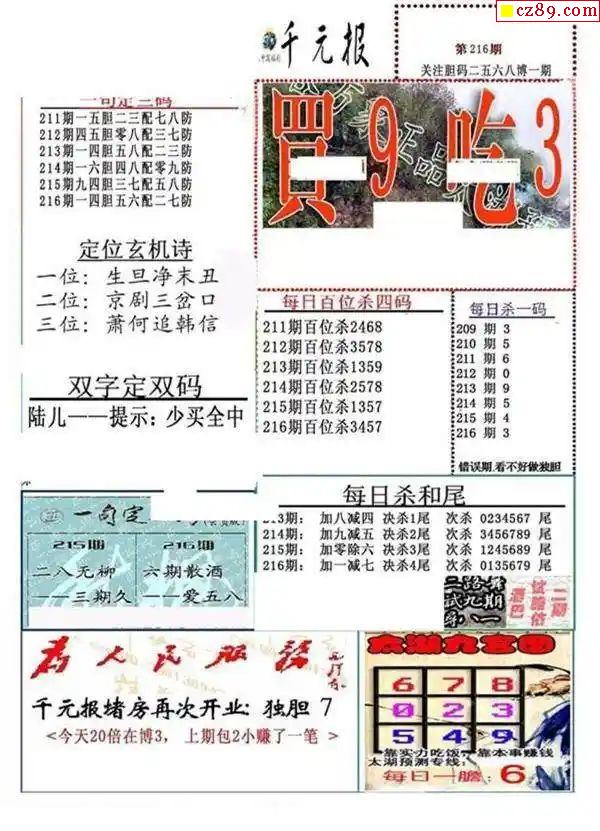 cz89.com
千元报
第216期
关注胆码二五六八博一期
一句定三码
211期一五胆二三配七八防
212期四五胆零八配三七防
213期一四胆五八配二三防
214期一六胆四八配零九防
215期九四胆三七配五八防
216期一四胆五六配二七防
買9吃3
定位玄机诗
一位:生旦净末丑
二位:京剧三岔口
三位:萧何追韩信
每日百位杀四码
211期百位杀2468
212期百位杀3578
213期百位杀1359
214期百位杀2578
215期百位杀1357
216期百位杀3457
每日杀一码
209 期 3
210 期 5
211 期 6
212 期 0
213 期 9
214 期 5
215 期 4
216 期 3
错误期,看不好做独胆
双字定双码
陆儿——提示:少买全中
每日杀和尾
213期: 加八减四 决杀1尾 次杀 0234567 尾
214期: 加九减五 决杀2尾 次杀 3456789 尾
215期: 加零除六 决杀3尾 次杀 1245689 尾
216期: 加一减七 决杀4尾 次杀 0135679 尾
一句定
215期
二八无柳
——三期久
216期
六期散酒
——爱五八
为人民服务
千元报堵房再次开业:独胆 7
<今天20倍在博3, 上期包2小赚了一笔 >
太湖九宫图
6 7 8
0 2 3
5 4 9
靠实力吃饭,靠本事赚钱
太湖预测专线:
每日一胆: 6